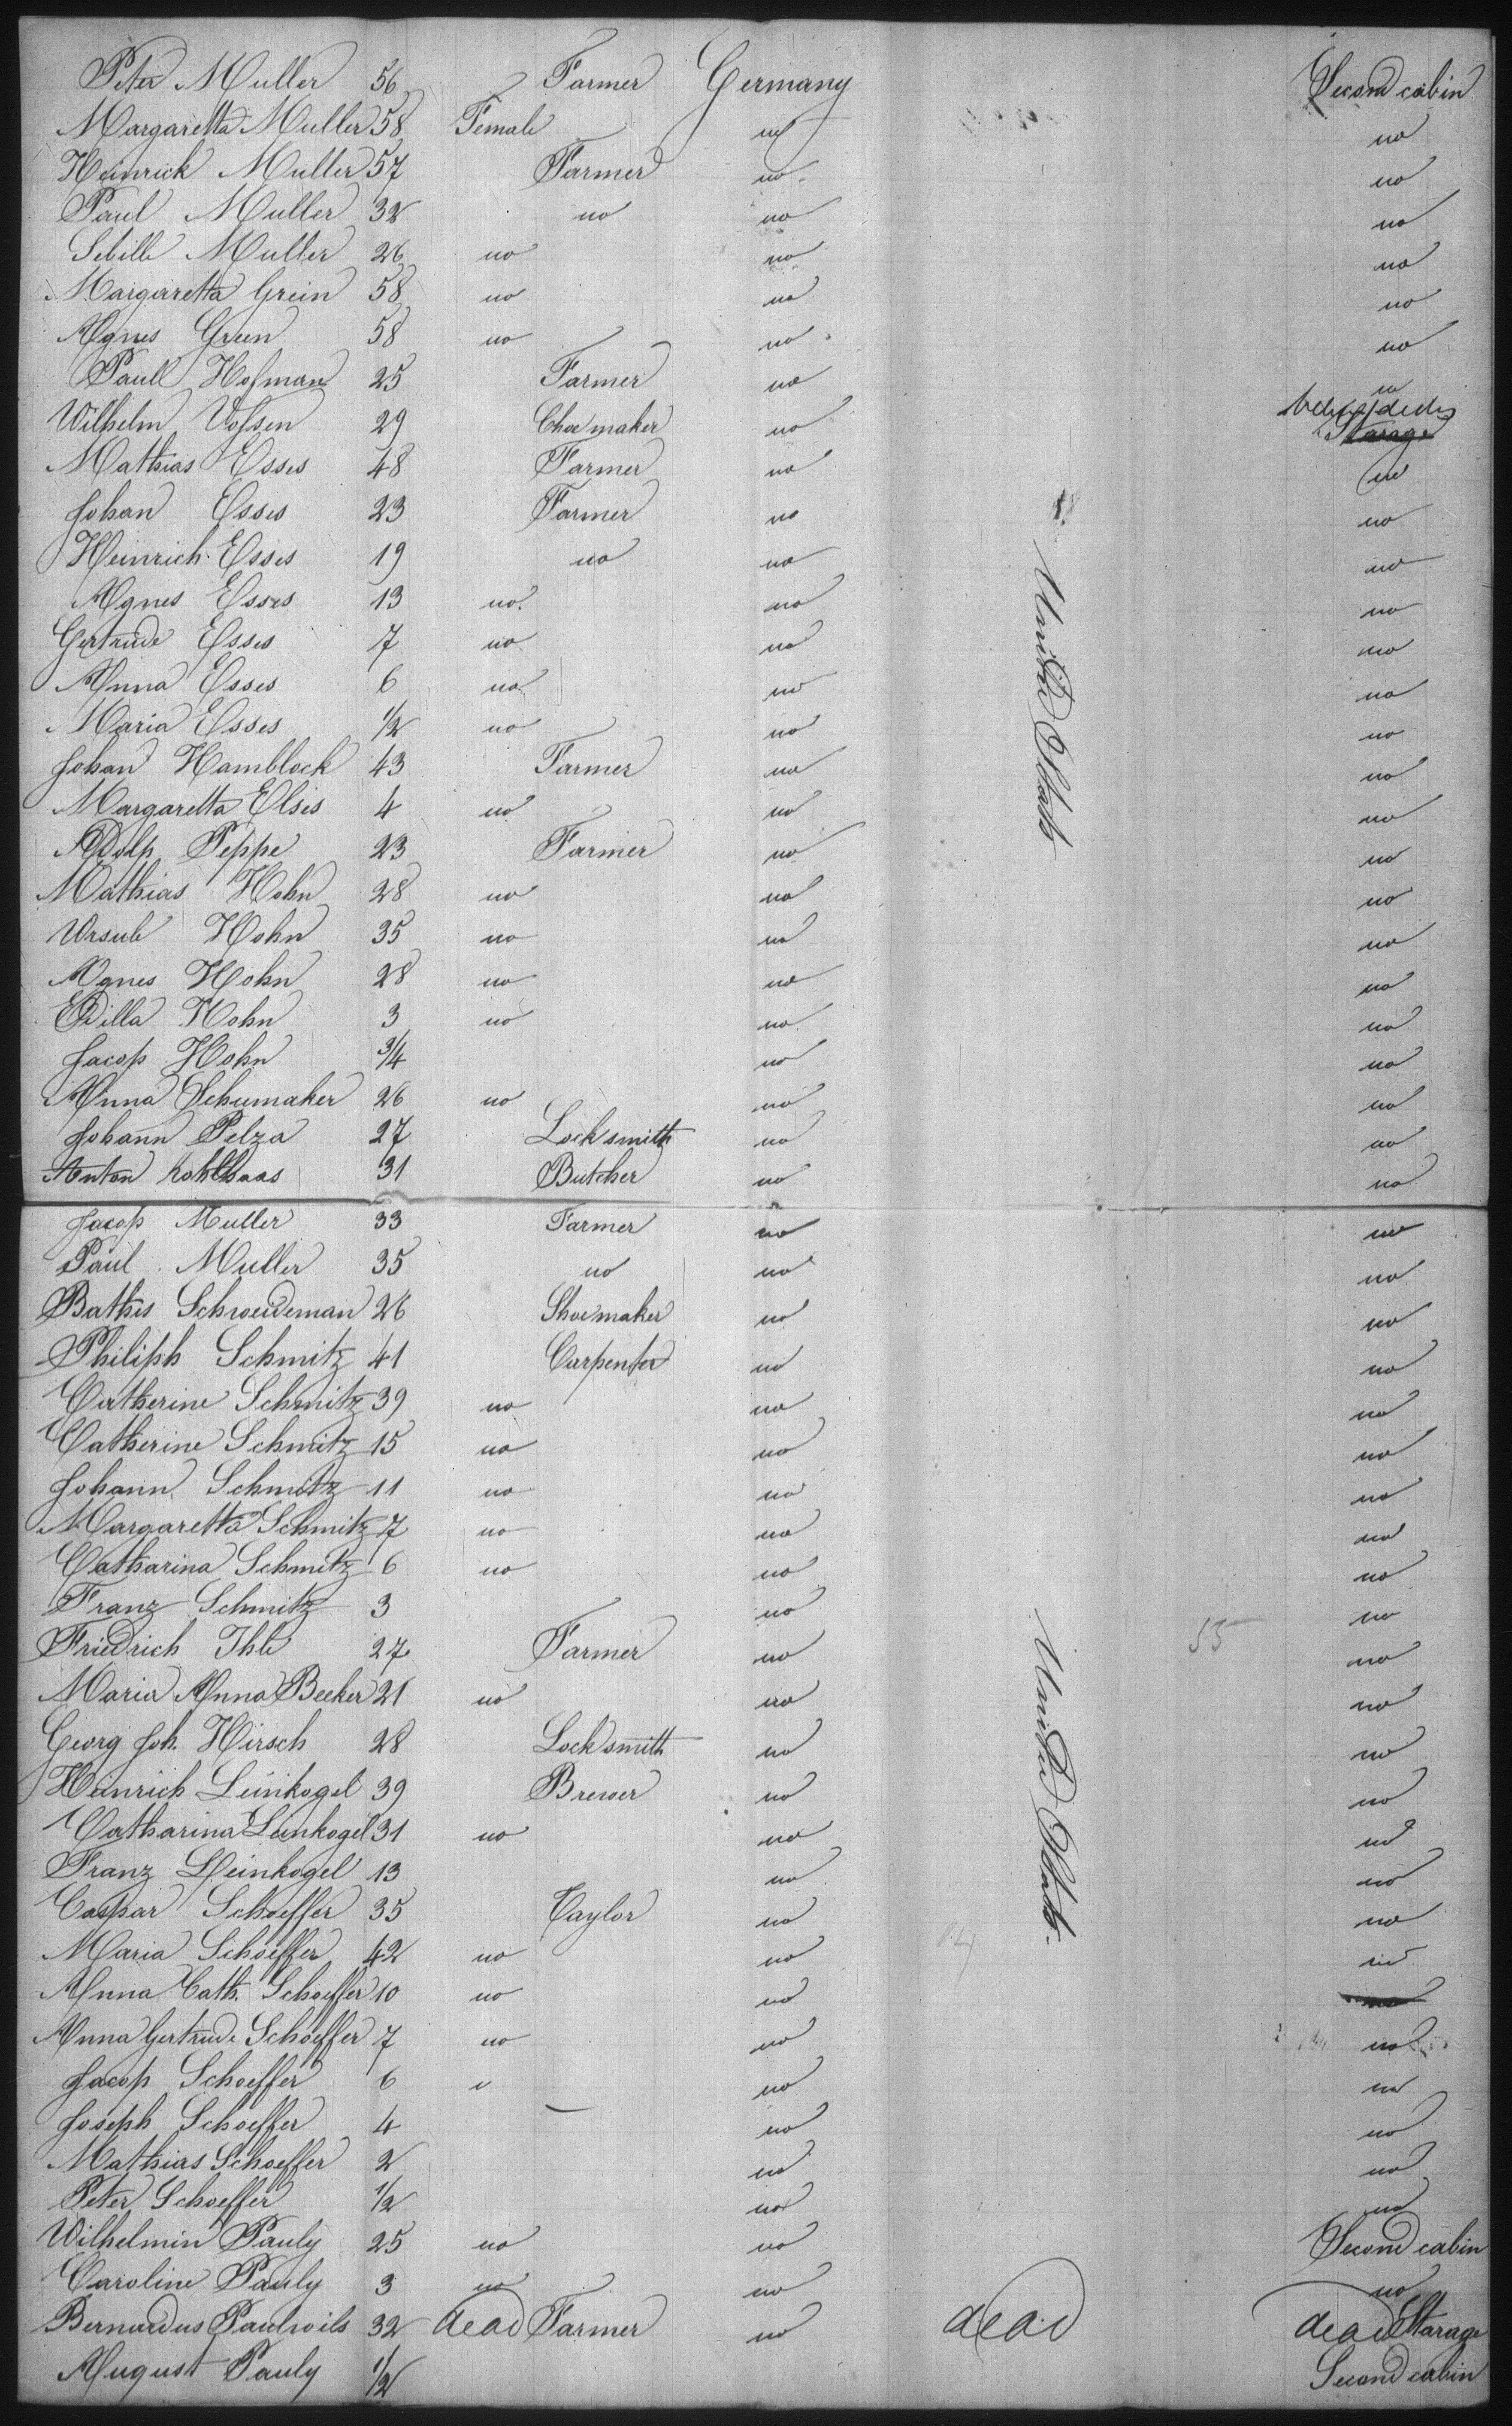 Peter Muller 56 Farmer Germany Second cabin
Margaretta Muller 58 Female no no
Heinrick Muller 57 Farmer no no
Paul Muller 32 no no no
Sebille Muller 26 no no no
Margarretta Grein 58 no no no
Agnes Grein 58 no no no
Paull Hofman 25 Farmer no no
Wilhelm Vossen 29 Choemaker no Starage
Mathias Esses 48 Farmer no no
Johan Esses 23 Farmer no no
Heinrich Esses 19 no no no
Agnes Esses 13 no no no
Gertrude Esses 7 no no no
Anna Esses 6 no no no
Maria Esses 1/2 no no no
Johan Hamblock 43 Farmer no no
Margaretta Elsis 4 no no no
Adolp Peppe 23 Farmer no no
Mathias Hohn 28 no no no
Ursule Hohn 35 no no no
Agnes Hohn 28 no no no
Edilla Hohn 3 no no no
Jacop Hohn 3/4 no no
Anna Schumaker 26 no no no
Johann Pelza 27 Locksmith no no
Anton Kohlhaas 31 Butcher no no
United States
Jacop Muller 33 Farmer no no
Paul Muller 35 no no no
Bathis Schweideman 26 Shoemaker no no
Philiph Schmitz 41 Carpenter no no
Catherine Schmitz 39 no no no
Catherine Schmitz 15 no no no
Johann Schmitz 11 no no no
Margaretta Schmitz 7 no no no
Catharina Schmitz 6 no no no
Franz Schmitz 3 no no
Friedrich Ihle 27 Farmer no 55 no
Maria Anna Becker 21 no no no
Georg Joh. Hirsch 28 Locksmith no no
Heinrich Leinkogel 39 Brewer no no
Catharina Leinkogel 31 no no no
Franz Leinkogel 13 no no
Caspar Schoeffer 35 Taylor no no
Maria Schoeffer 42 no no no
Anna Cath. Schoeffer 10 no no no
Anna Gertrude Schoeffer 7 no no no
Jacop Schoeffer 6 no no
Joseph Schoeffer 4 no no
Mathias Schoeffer 2 no no
Peter Schoeffer 1/2 no no
Wilhelmin Pauly 25 no no Second cabin
Caroline Pauly 3 no no no
Bernardus Paulwils 32 dead Farmer no dead dead Starage
August Pauly 1/2 Second cabin
United States